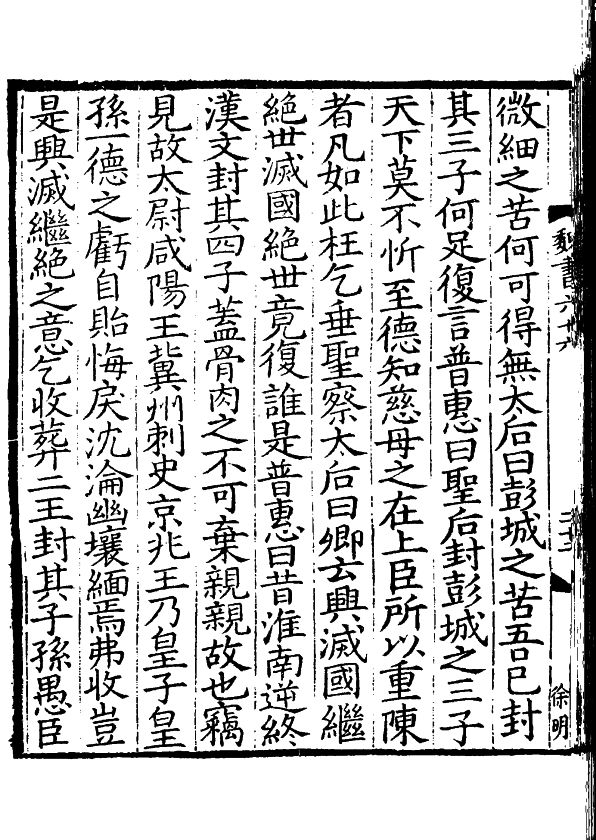 微細之苦何可得無太后曰彭城之苦吾已封
其三子何足復言普惠曰聖后封彭城之三子
天下莫不忻至德知慈母之在上臣所以重陳
者凡如此枉乞垂聖察太后曰卿云興滅國繼
絕世滅國絕世竟復誰是普惠曰昔淮南逆終
漢文封其四子蓋骨肉之不可棄親親故也竊
見故太尉咸陽王冀州刺史京兆王乃皇子皇
孫一德之虧自貽悔戾沈淪幽壤緬焉弗收豈
是興滅繼絕之意乞收葬二王封其子孫愚臣
魏書六十六
二十三
徐明